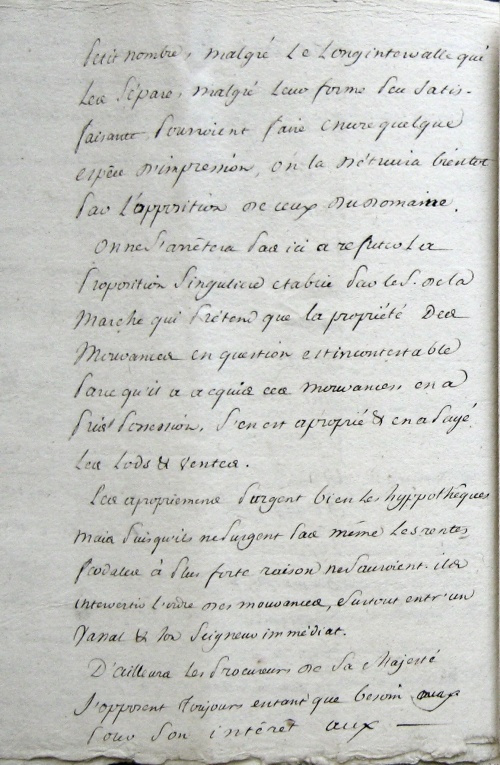 petit nombre, malgré le long intervalle qui
les sépare, malgré leur forme peu satis-
faisante, pouvoient faire encore quelque
espèce d'impression, on la détruira bientot
par l'apposition de ceux du domaine.
On ne s'arrêtera pas ici a refuter la
proposition singuliere etablie par le S. de la
Marche qui prétend que la propriété des
mouvances en question est incontestable
parce qu'il a acquis ces mouvances, en a
pris possession, s'en est aproprié & en a payé
les lods & ventes.
Les apropriemens purgent bien les hyppothéques
mais puisqu'ils ne purgent pas même les rentes
feodales à plus forte raison ne sauroient-ils
intervertir l'ordre des mouvances, surtout entr'un
vassal & son seigneur immédiat.
D'ailleurs les procureurs de Sa Majesté
s'opposent toujours entant que besoin
pour son intéret aux